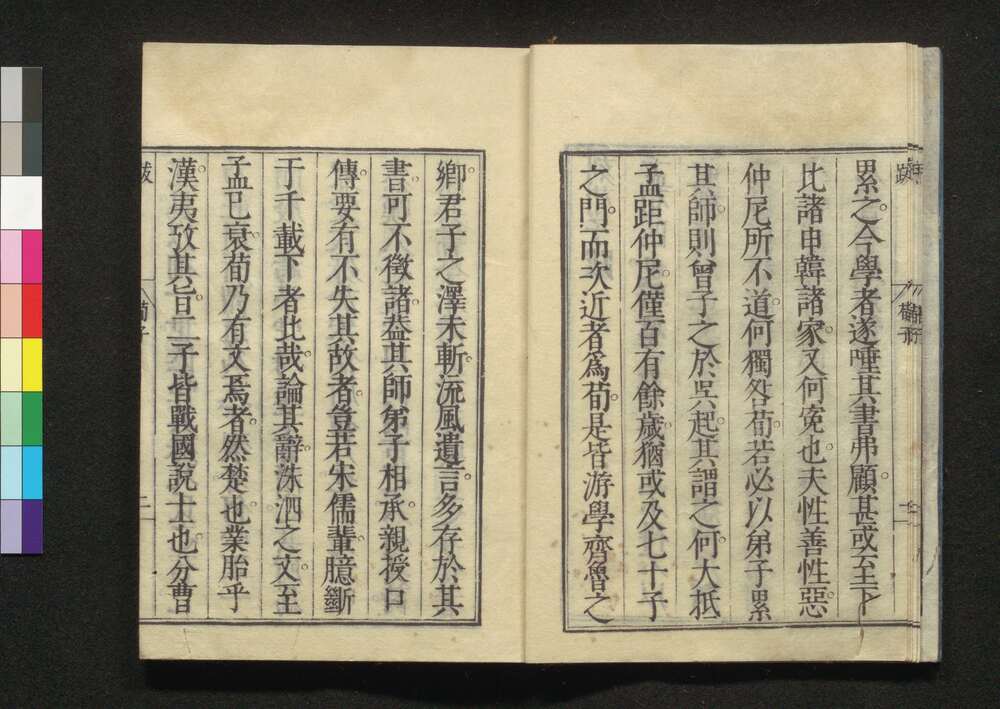 累之。今學者遂唾其書弗顧。甚或至下
比諸申韓諸家。又何寃也。夫性善性惡。
仲尼所不道。何獨咎荀。若必以弟子累
其師。則曾子之於吳起。其謂之何。大抵
孟距仲尼。僅百有餘歲。猶或及七十子
之門。而次近者爲荀。是皆游學齊魯之
鄉。君子之澤未斬。流風遺言。多存於其
書。可不徵諸。葢其師弟子相承。親授口
傳。要有不失其故者。豈若宋儒輩臆斷
于千載下者比哉。論其辭。洙泗之文。至
孟已衰。荀乃有文焉者。然楚也。業胎乎
漢夷。攷其旨。二子皆戰國說士也。分曹
跋
荀子
二